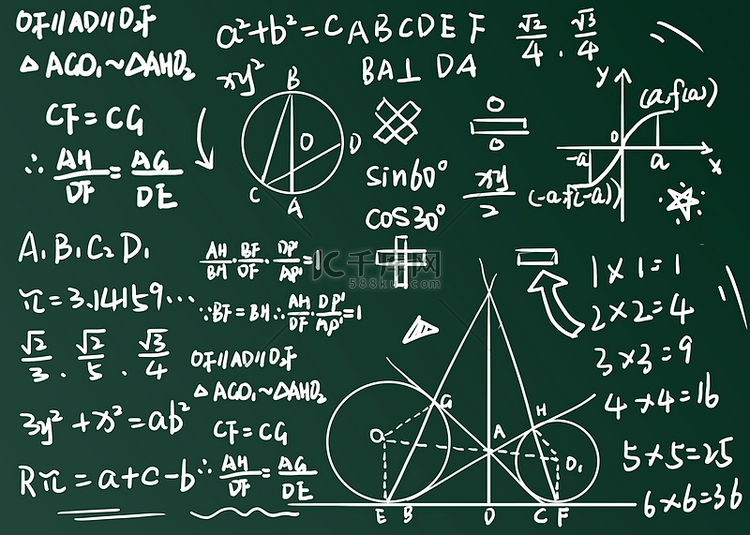 OF∥AD∥O₁F
△AGO₁∽△AHO₂
CF=CG
∴ AH/DF = AG/DE
a²+b²=C A B C D E F
√2/4 . √3/4
BA⊥DA
xy²
B
O
D
C
A
÷
sin60°
cos30°
xy/2
y
(a,f(a))
o
-a
a
x
(-a,f(-a))
A₁B₁C₂D₁
π=3.14159…
√2/3 . √2/5 . √3/4
3y²+x²=ab²
Rπ=a+c-b
AH/BH · BF/OF · DP'/AP' =1
∵BF=BH∴ AH/DF · DP'/AP' =1
千库网
588ku.com
OF∥AD∥O₁F
△AGO₁∽△AHO₂
CF=CG
∴ AH/DF = AG/DE
G
H
O
A
O₁
E B D C F
1×1=1
2×2=4
3×3=9
4×4=16
5×5=25
6×6=36